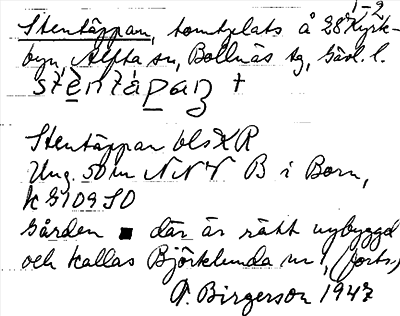 1-9
Stentäppan, tomtplats å 28 Kyrk-
byn, Alfta sn, Bollnäs tg, Gävl. l.
stèntápan +
Stentäppan bls X R
Ung. 50 m NNV B i Born,
k G109 SO
Gården ■ där är rätt nybyggd
och kallas Björklunda nr 1, (forts.)
A. Birgerson 1947